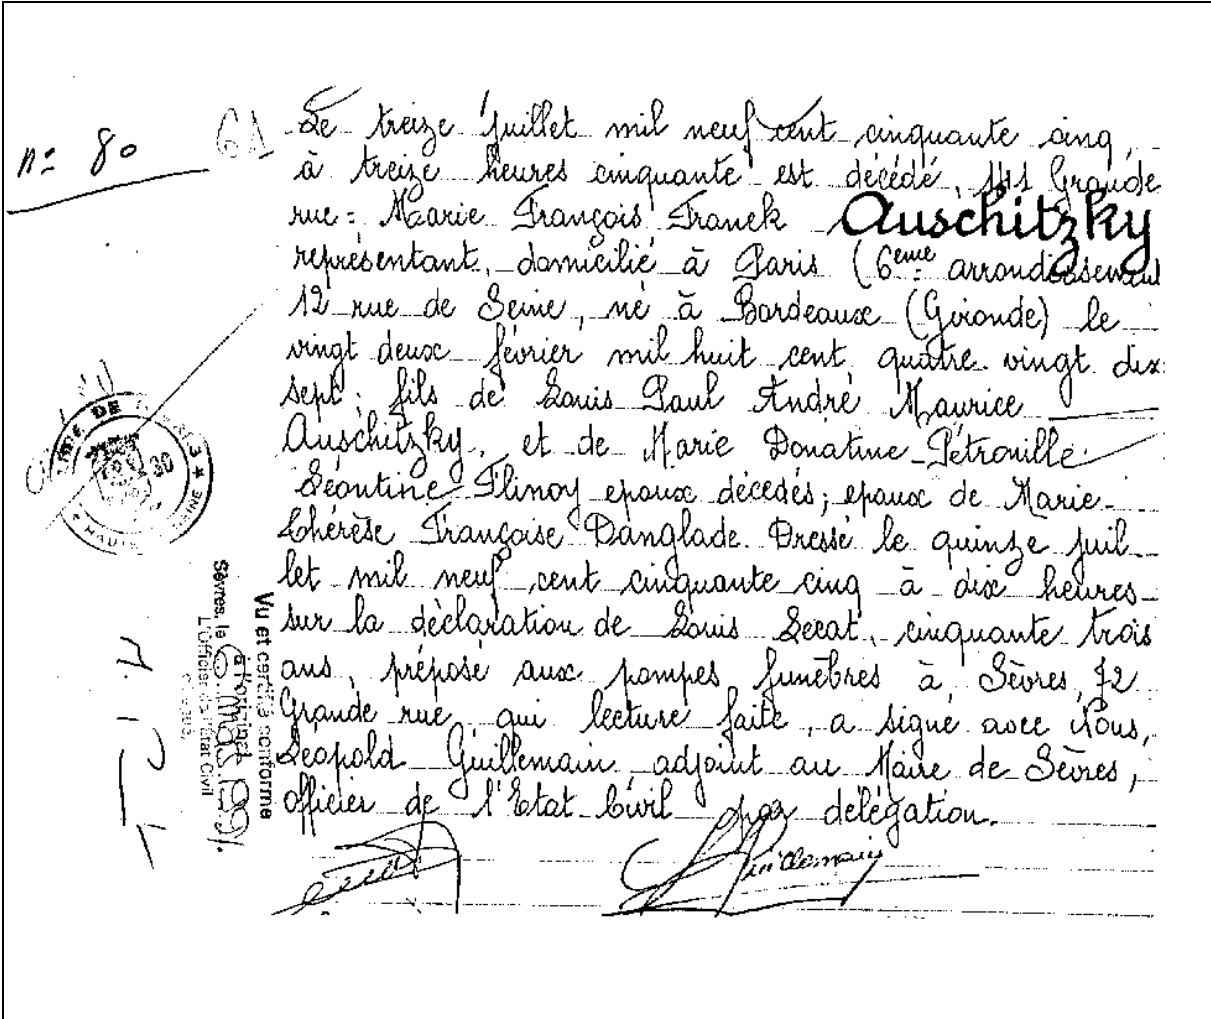 n° 80
61
Le treize juillet mil neuf cent cinquante cinq,
à treize heures cinquante est décédé, 141 Grande
rue : Marie François Franck Auschitzky
représentant, domicilié à Paris (6eme arrondissement
12 rue de Seine, né à Bordeaux (Gironde) le
vingt deux février mil huit cent quatre vingt dix
sept ; fils de Louis Paul André Maurice
Auschitzky, et de Marie Donatine Pétronille
Léontine Flinoy epoux décédés ; epoux de Marie
Thérèse Françoise Danglade. Dressé le quinze juil
let mil neuf cent cinquante cinq à dix heures
sur la déclaration de Louis Secat, cinquante trois
ans, préposé aux pompes funèbres à Sèvres, 72
Grande rue, qui lecture faite, a signé avec Nous,
Léopold Guillemain, adjoint au Maire de Sèvres,
officier de l'Etat Civil par délégation.
Guillemain
Vu et certifié conforme
à l'original
Sèvres, le
L'Officier de l'Etat Civil